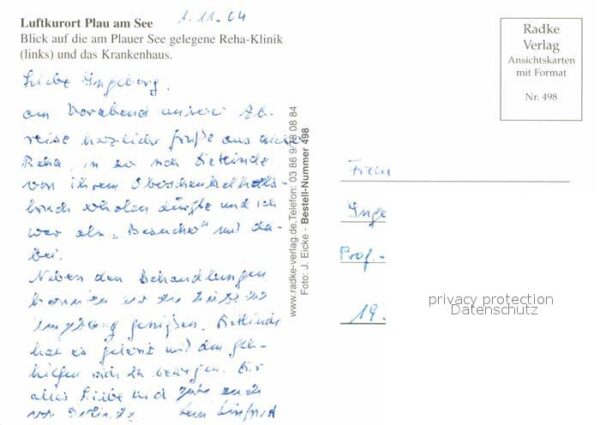 Luftkurort Plau am See
1.11.04
Blick auf die am Plauer See gelegene Reha-Klinik
(links) und das Krankenhaus.
Radke
Verlag
Ansichtskarten
mit Format
Nr. 498
Liebe Ingeborg,
am Vorabend unserer Ab-
reise herzliche Grüße aus
Reha, in
von ihrem Oberschenkelhals-
bruch erholen durfte und ich
war als „Besucher“ mit da-
bei.
Neben den Behandlungen
konnten wir
genießen. Dietlinde
hat es gelernt mit den Geh-
hilfen sich zu bewegen. Dir
alles Liebe und Gute auch
von
www.radke-verlag.de, Telefon: 03 86 9/78 08 84
Foto: J. Eicke - Bestell-Nummer 498
Frau
Inge
Prof.-
19.
privacy protection
Datenschutz